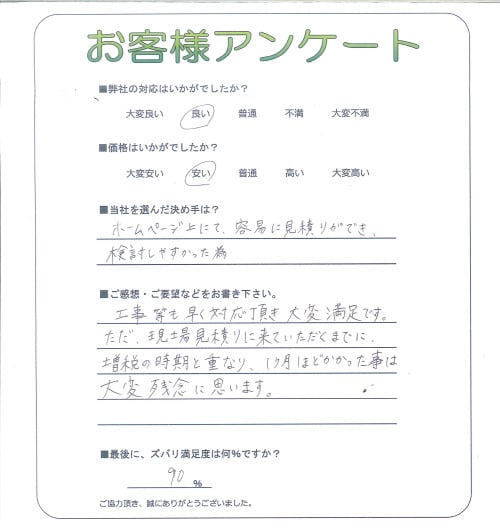 お客様アンケート
■弊社の対応はいかがでしたか？
大変良い 良い 普通 不満 大変不満
■価格はいかがでしたか？
大変安い 安い 普通 高い 大変高い
■当社を選んだ決め手は？
ホームページ上にて、容易に見積りができ、
検討しやすかった為
■ご感想・ご要望などをお書き下さい。
工事等も早く対応頂き大変満足です。
ただ、現場見積りに来ていただくまでに、
増税の時期と重なり、1ヶ月ほどかかった事は
大変残念に思います。
■最後に、ズバリ満足度は何％ですか？
90 ％
ご協力頂き、誠にありがとうございました。